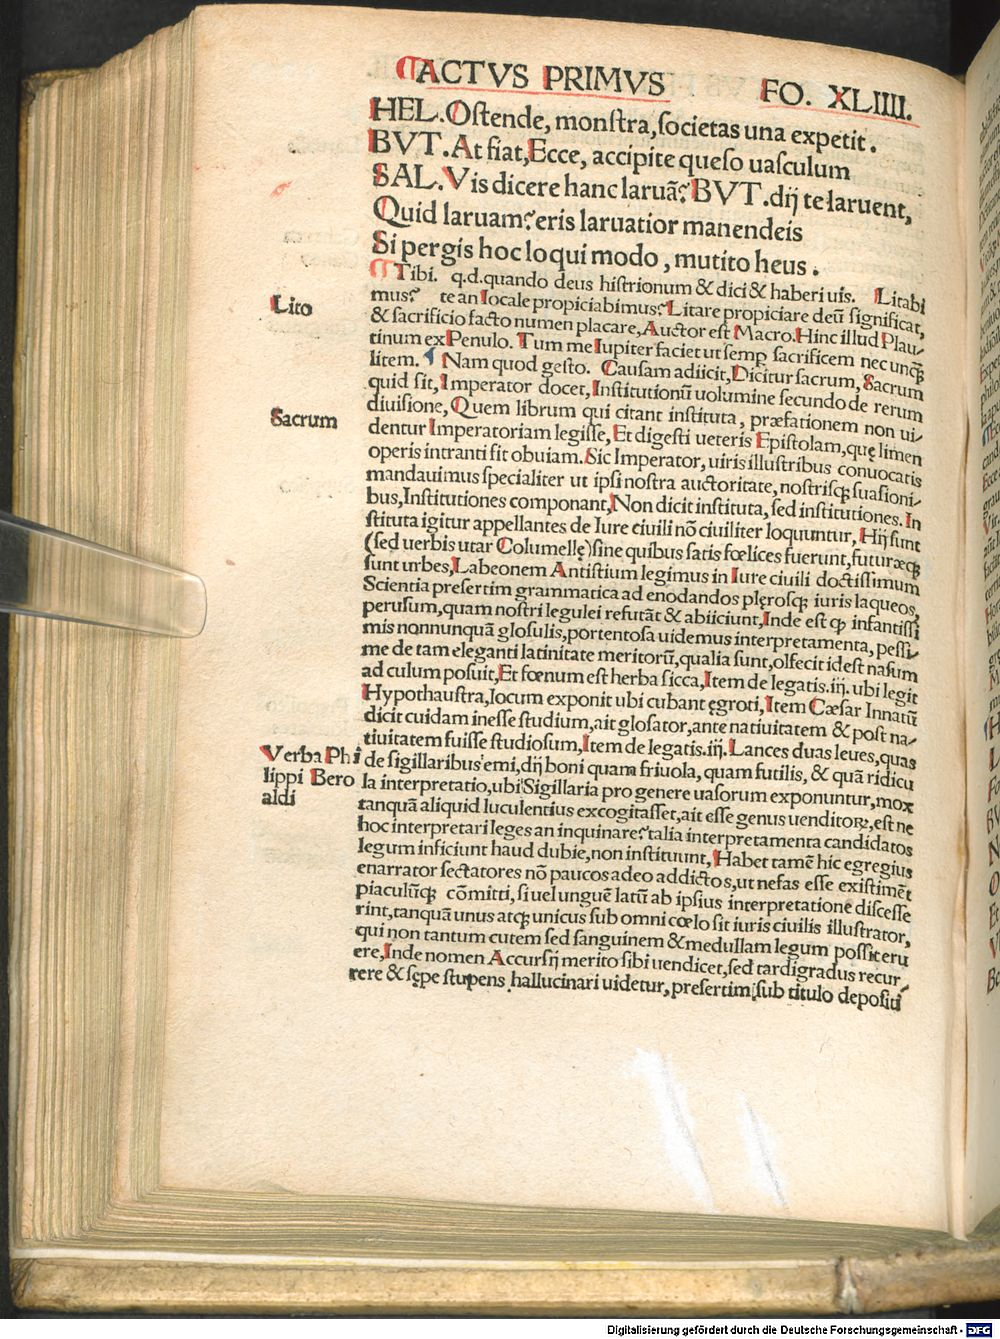 ACTVS PRIMVS FO. XLIIII.
HEL. Ostende, monstra, societas una expetit.
BVT. At fiat, Ecce, accipite queso uasculum
SAL. Vis dicere hanc laruã? BVT. dij te laruent,
Quid laruam? eris laruatior manendeis
Si pergis hoc loqui modo, mutito heus.
Tibi. q.d. quando deus histrionum & dici & haberi uis. Litabi
mus? te an Iocale propiciabimus? Litare propiciare deũ significat,
Lito
& sacrificio facto numen placare, Auctor est Macro. Hinc illud Plau-
tinum ex Penulo. Tum me Iupiter faciet ut semꝑ sacrificem nec unqꝫ
litem. Nam quod gesto. Causam adiicit, Dicitur sacrum, Sacrum
quid sit, Imperator docet, Institutionũ uolumine secundo de rerum
Sacrum
diuisione, Quem librum qui citant instituta, præfationem non ui-
dentur Imperatoriam legisse, Et digesti ueteris Epistolam, quę limen
operis intranti sit obuiam. Sic Imperator, uiris illustribus conuocatis
mandauimus specialiter ut ipsi nostra auctoritate, nostrisqꝫ suasioni-
bus, Institutiones componant, Non dicit instituta, sed institutiones. In
stituta igitur appellantes de Iure ciuili nõ ciuiliter loquuntur, Hij sunt
(sed uerbis utar Columellę) sine quibus satis fœlices fuerunt, futuræqꝫ
sunt urbes, Labeonem Antistium legimus in Iure ciuili doctissimum
Scientia presertim grammatica ad enodandos plęrosqꝫ iuris laqueos,
perusum, quam nostri legulei refutãt & abiiciunt, Inde est qꝫ infantissi
mis nonnunquã glosulis, portentosa uidemus interpretamenta, pessi-
me de tam eleganti latinitate meritorũ, qualia sunt, olfecit id est nasum
ad culum posuit, Et fœnum est herba sicca, Item de legatis. iij. ubi legit
Hypothaustra, locum exponit ubi cubant ęgroti, Item Cæsar Innatũ
dicit cuidam inesse studium, ait glosator, ante natiuitatem & post na-
tiuitatem fuisse studiosum, Item de legatis. iij. Lances duas leues, quas
Verba Phi
lippi Bero
aldi
de sigillaribus emi, dij boni quam friuola, quam futilis, & quã ridicu
la interpretatio, ubi Sigillaria pro genere uasorum exponuntur, mox
tanquã aliquid luculentius excogitasset, ait esse genus uenditorꝝ, est ne
hoc interpretari leges an inquinare? talia interpretamenta candidatos
legum inficiunt haud dubie, non instituunt, Habet tamẽ hic egregius
enarrator sectatores nõ paucos adeo addictos, ut nefas esse existimẽt
piaculũqꝫ cõmitti, si uel unguẽ latũ ab ipsius interpretatione discesse
rint, tanquã unus atqꝫ unicus sub omni cœlo sit iuris ciuilis illustrator,
qui non tantum cutem sed sanguinem & medullam legum possit eru
ere, Inde nomen Accursij merito sibi uendicet, sed tardigradus recur-
rere & sępe stupens hallucinari uidetur, presertim sub titulo depositi
Digitalisierung gefördert durch die Deutsche Forschungsgemeinschaft - DFG